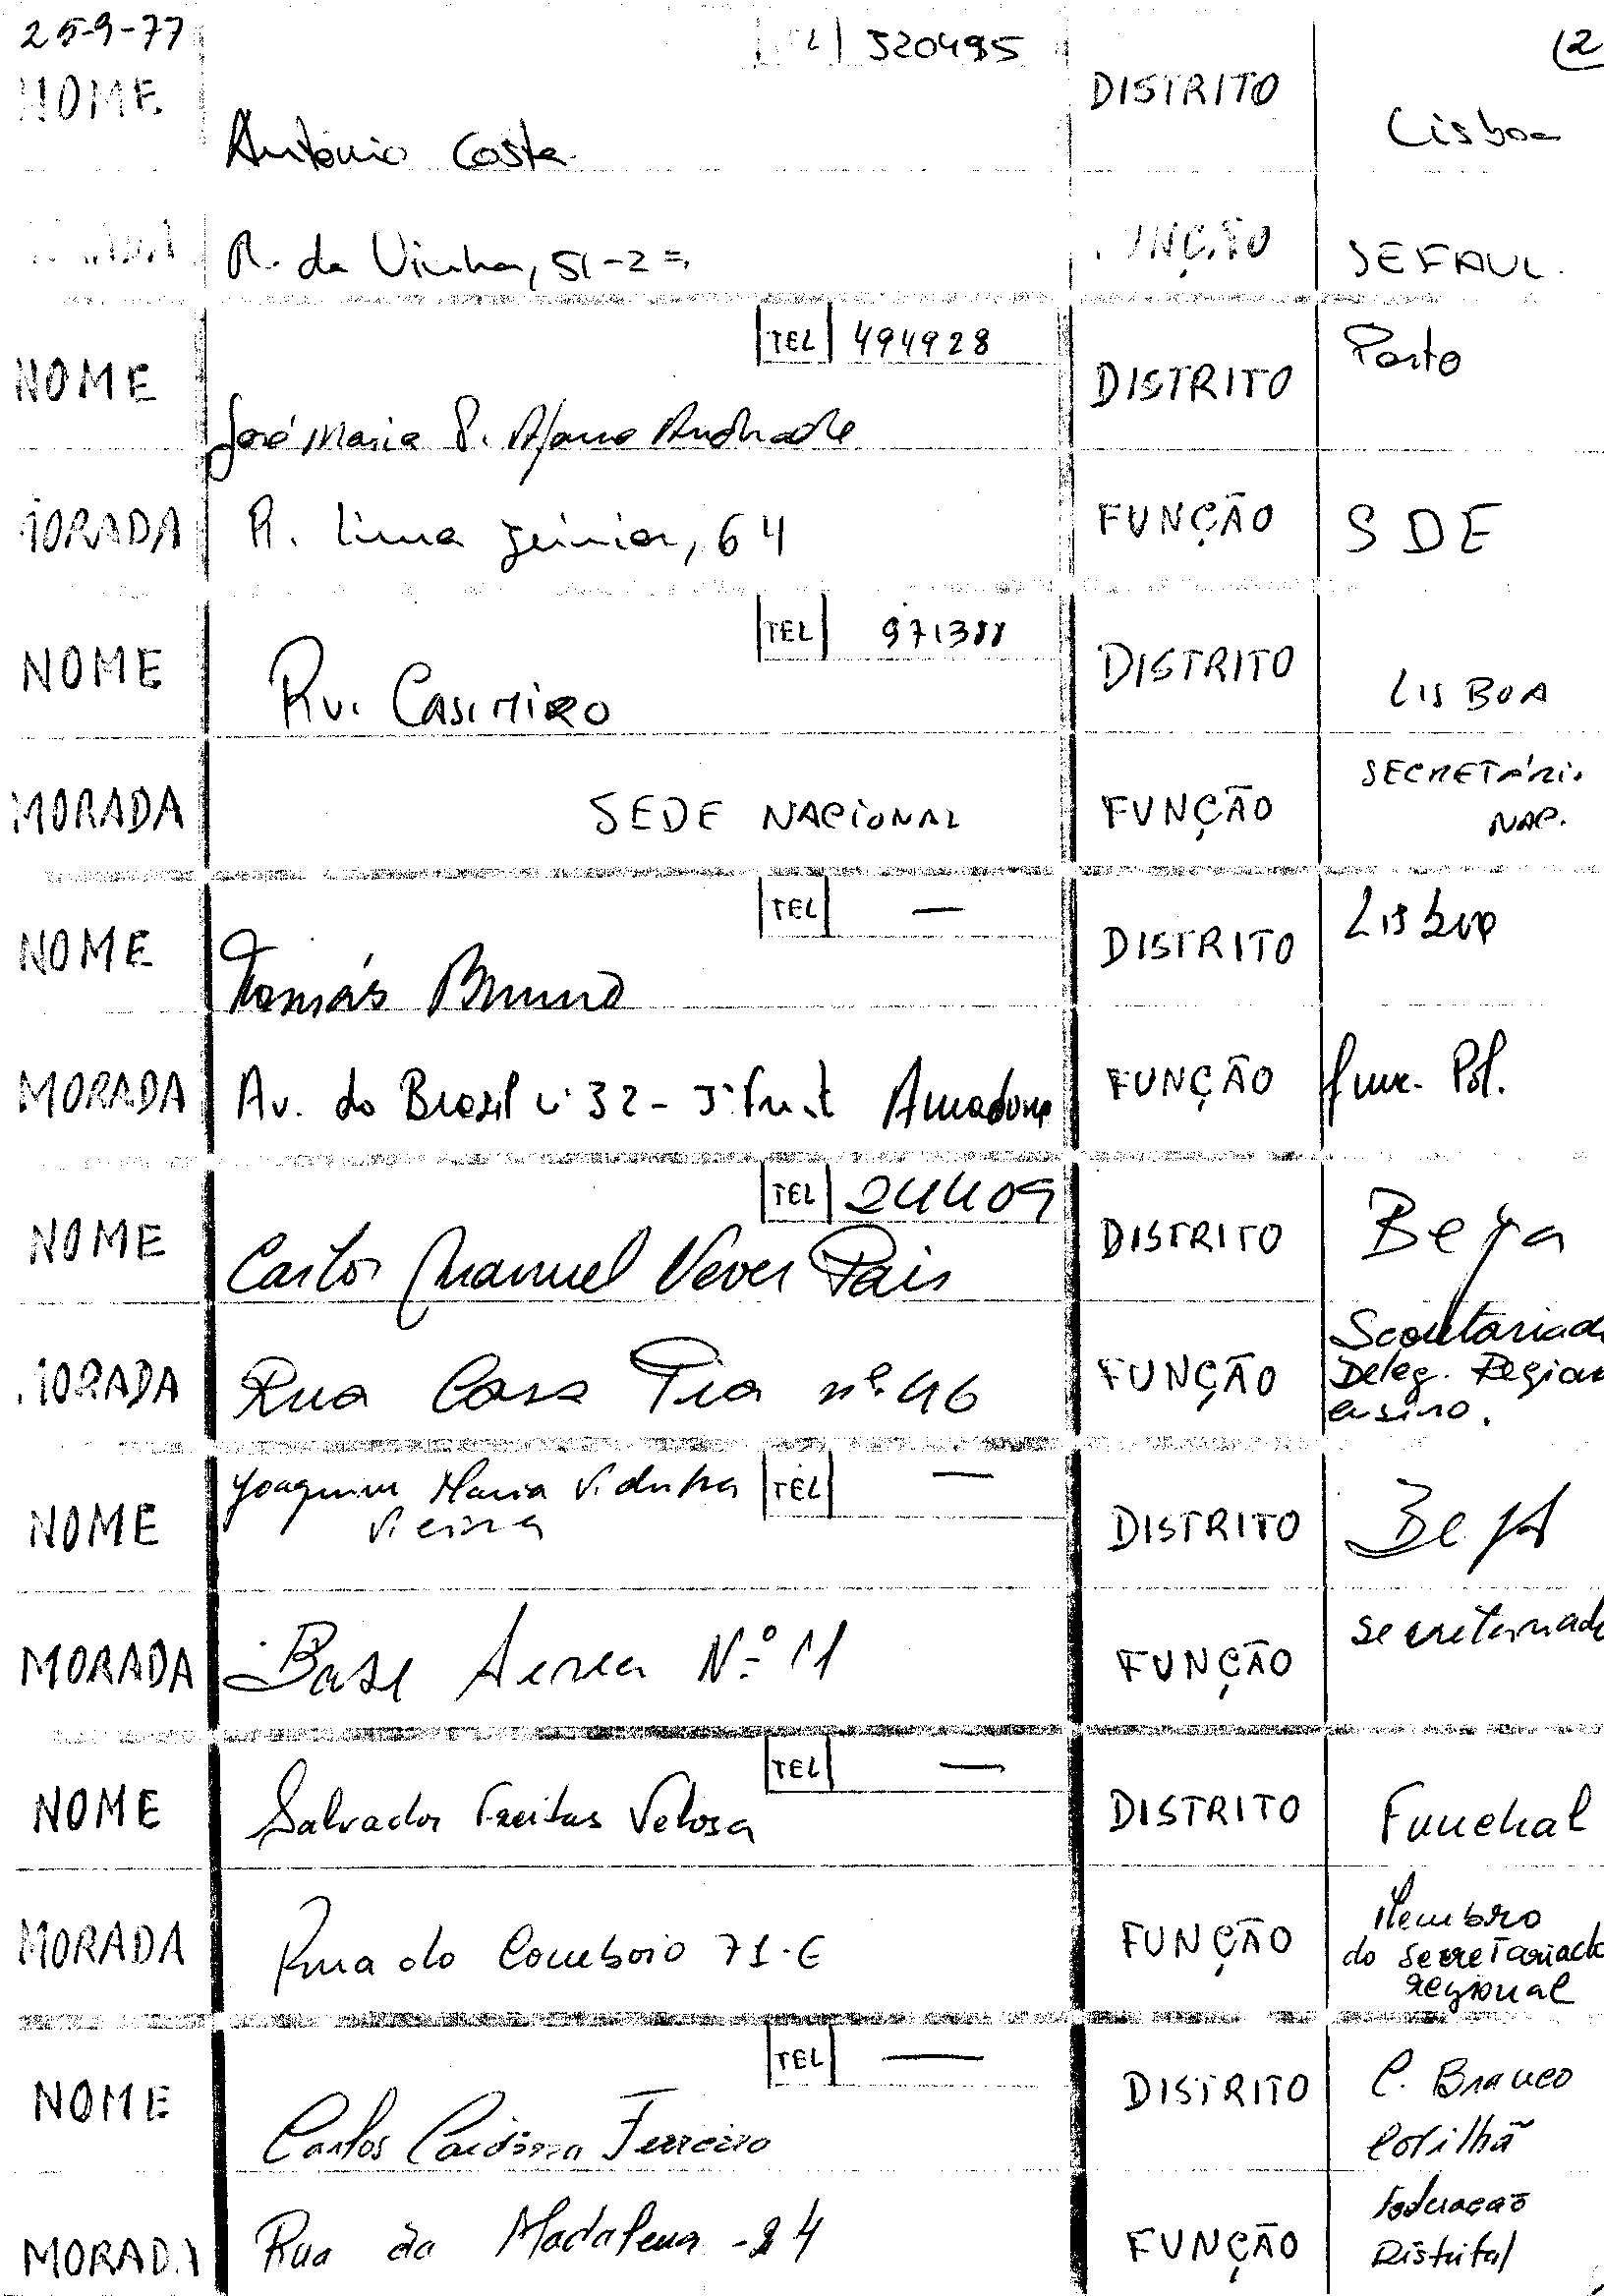 25-9-77
TEL 320495
12
NOME António Costa DISTRITO Lisboa
MORADA R. da Vinha, 51-2º FUNÇÃO SEFAUL.
TEL 494928
NOME José Maria P. Afonso Andrade DISTRITO Porto
MORADA R. Lima Júnior, 64 FUNÇÃO SDE
TEL 971388
NOME Rui CASIMIRO DISTRITO LISBOA
MORADA SEDE NACIONAL FUNÇÃO SECRETÁRIO
NAC.
TEL —
NOME Tomás Bruno DISTRITO Lisboa
MORADA Av. do Brazil nº 32 - 3º Amadora FUNÇÃO func. Pol.
TEL 24409
NOME Carlos Manuel Neves Pais DISTRITO Beja
MORADA Rua Casa Pia nº 46 FUNÇÃO Secretariado
Deleg. Region
ensino.
NOME Joaquim Maria TEL —
Vieira DISTRITO Beja
MORADA Base Aerea N.º 11 FUNÇÃO secretariado
TEL —
NOME Salvador Freitas Velosa DISTRITO Funchal
MORADA Rua do Comboio 71-E FUNÇÃO Membro
do secretariado
regional
TEL —
NOME Carlos Ferreiro DISTRITO C. Branco
Covilhã
MORADA Rua da Madalena - 24 FUNÇÃO Federação
Distrital